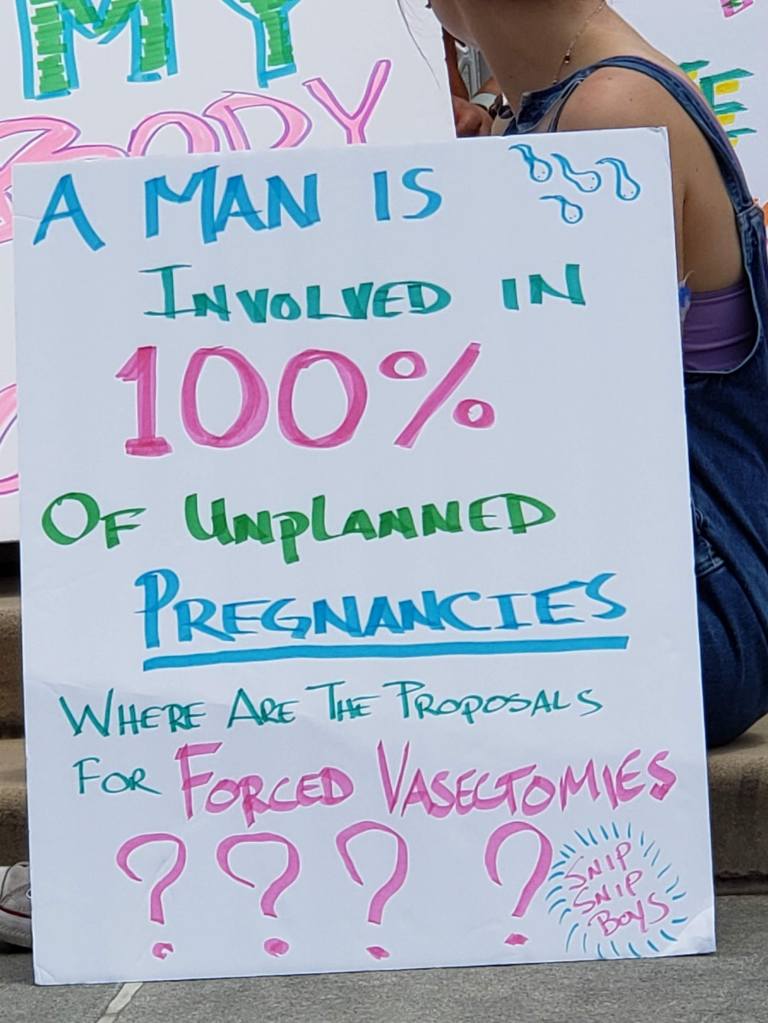 MY
BODY
A MAN IS
INVOLVED IN
100%
OF UNPLANNED
PREGNANCIES
WHERE ARE THE PROPOSALS
FOR FORCED VASECTOMIES
? ? ? ?
SNIP
SNIP
BOYS